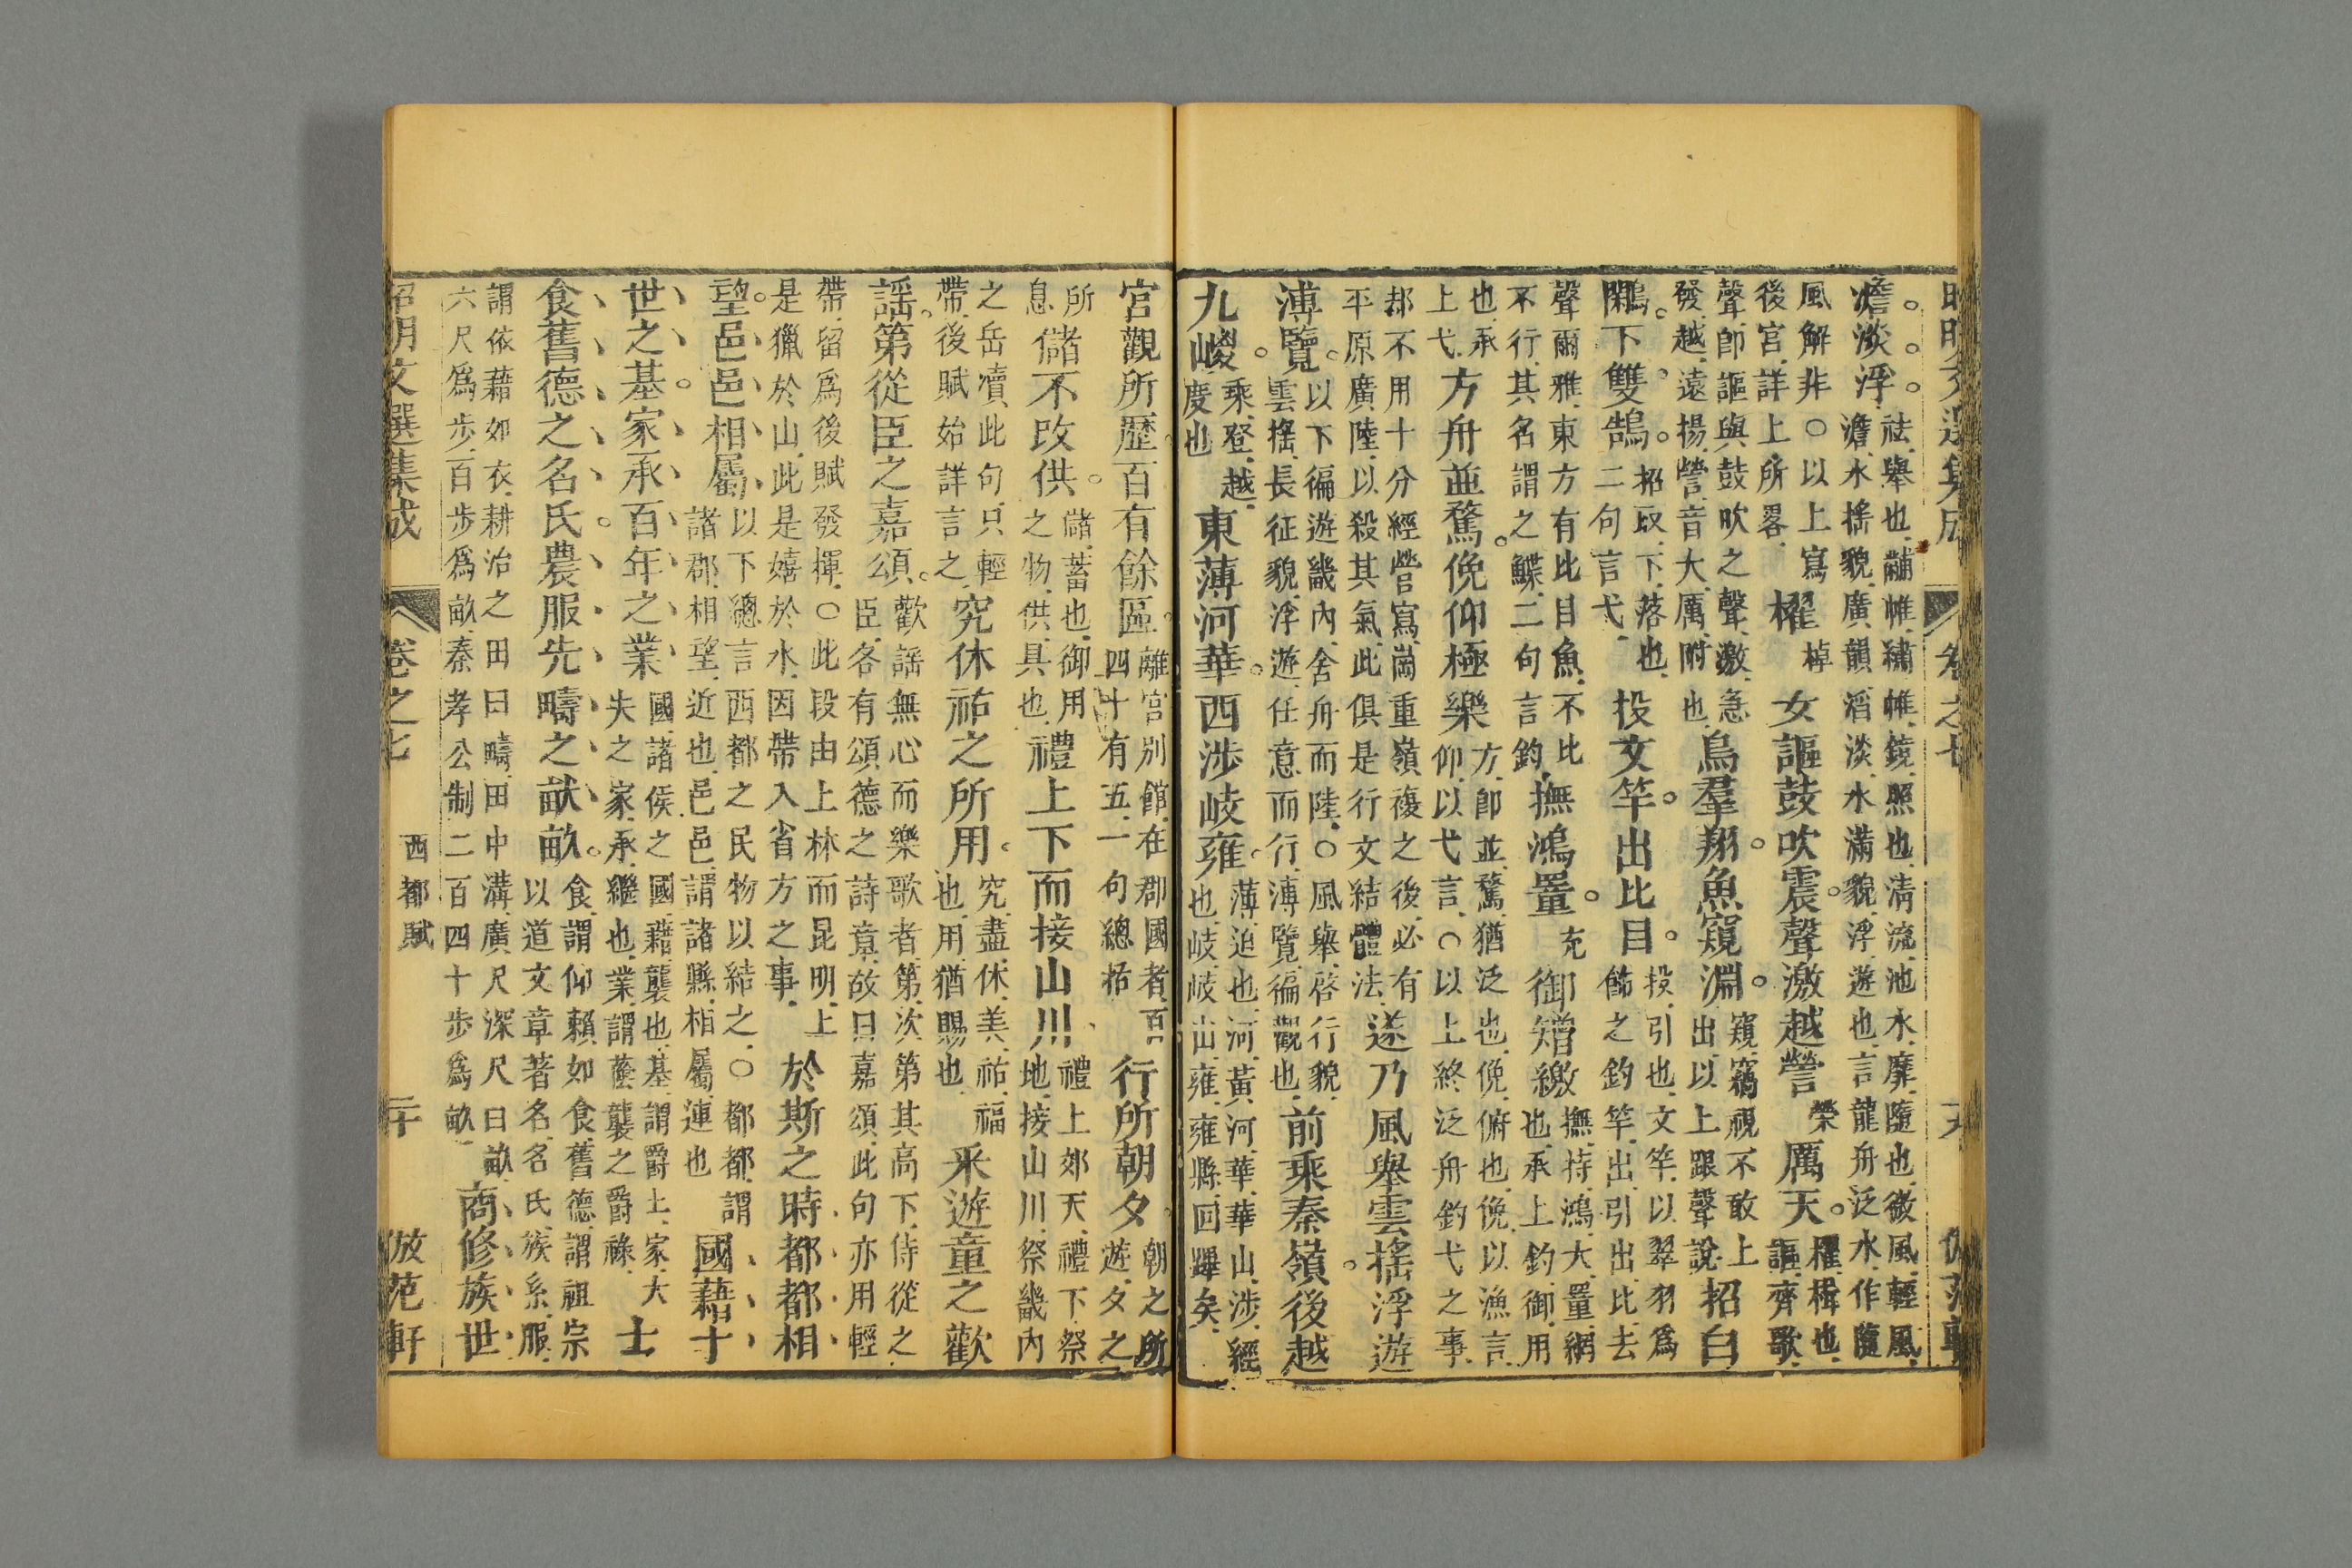 卷之七
澹淡浮。祛,舉也,黼帷,繡帷,鏡,照也,清流,池水,靡,隨也,微風,輕風,澹,水搖貌,廣韻滔淡水滿貌,浮,遊也,言龍舟泛水,作隨
風解非○以上寫後宮,詳上所畧,櫂棹女謳鼓吹震。聲激越謍榮厲天。櫂,楫也,謳,齊歌,
聲,卽謳與鼓吹之聲,激,急發越,遠揚,謍,音大,厲,附也,鳥羣翔。魚窺淵。窺,竊視不敢上出,以上跟聲說,招白
鷴。下雙鵠。招,取,下,落也,二句言弋,投文竿。出比目。投,引也,文竿,以翠羽爲飾之釣竿,出,引出,比,去
聲爾雅,東方有比目魚,不比不行,其名謂之鰈,二句言釣,撫鴻罿。充御矰繳撫,持,鴻,大,罿,網也,承上釣,御,用
也,承上弋,方舟並騖。俛仰極樂方,卽並,騖,猶泛也,俛,俯也,俛,以漁言,仰,以弋言,○以上終泛舟釣弋之事,
却不用十分經營寫,崗重嶺複之後,必有平原廣陸,以殺其氣,此俱是行文結體法,遂乃風舉雲搖浮遊
溥覽。以下徧遊畿內,舍舟而陸,○風舉,啓行貌,雲搖,長征貌,浮遊,任意而行,溥覽,徧觀也,前乘秦嶺。後越
九嵕。乘,登,越,度也東薄河華。西涉岐雍。薄,迫也,河,黃河,華,華山,涉,經也,岐,岐山,雍,雍縣,回蹕矣,
宮觀所歷。百有餘區。離宮別館,在郡國者,百四十有五,一句總括行所朝夕。朝之所遊,夕之
所息儲不改供。儲,蓄也,御用之物,供,具也,禮上下而接山川、禮上,郊天,禮下,祭地,接山川,祭畿內
之岳瀆,此句只輕帶,後賦始詳言之,究休祐之所用。究,盡,休,美,祐,福也,用,猶賜也,采遊童之歡
謠。第從臣之嘉頌。歡謠,無心而樂歌者,第,次第其高下,侍從之臣,各有頌德之詩章,故曰嘉頌,此句亦用輕
帶,留爲後賦發揮,○此段由上林而昆明,上是獵於山,此是嬉於水,因帶入省方之事,於斯之時,都都相
望。邑邑相屬以下總言西都之民物以結之,○都都,謂諸郡,相望,近也,邑邑,謂諸縣,相屬,連也國藉十
世之基。家承百年之業國,諸侯之國,藉,襲也,基,謂爵土,家,大夫之家,承,繼也,業,謂蔭襲之爵祿,士
食舊德之名氏。農服先疇之畎畝。食,謂仰賴如食,舊德,謂祖宗以道文章著名,名氏,族系,服,
謂依藉如衣,耕治之田曰疇,田中溝,廣尺深尺曰畝,六尺爲步,百步爲畝,秦孝公制二百四十步爲畝商修族世
昭明文選集成 卷之七 西都賦 二十 倣范軒